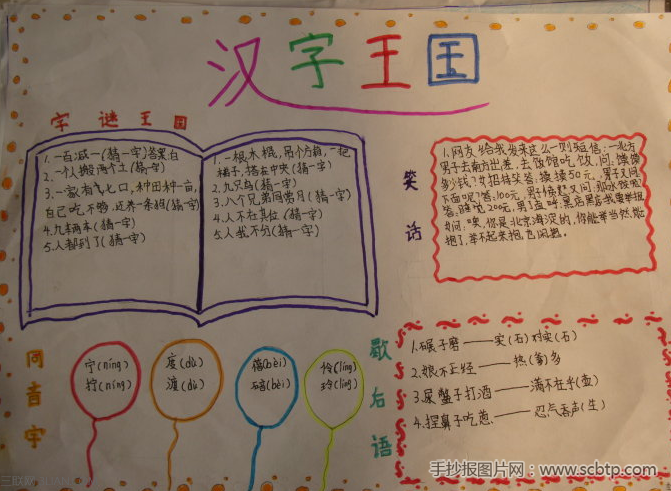 汉字王国
字谜王国
1.一百减一(猜一字)答案:白
2.一个人搬两个土(猜一字)
3.一家有七口,种田种一亩,
自己吃不够,还养一条狗(猜一字)
4.九辆车(猜一字)
5.人都到了(猜一字)
1.一根木棍,吊个方箱,一把
梯子,搭在中央(猜一字)
2.九只鸟(猜一字)
3.八个兄弟同赏月(猜一字)
4.人不在其位(猜一字)
5.人我不分(猜一字)
笑话
1.网友给我发来这么一则短信:一北方
男子去南方出差,去饭馆吃饭,问:馒馒
多少钱?女招待笑答:摸摸50元,男子又问:
下面呢?答:100元,男子惊愁又问:那水饺呢?
答:睡觉200元,男子直呼:黑店黑店我要举报
同音字
宁(níng)
拧(níng)
度(dù)
渡(dù)
蓓(bèi)
碚(bèi)
伶(líng)
玲(líng)
歇后语
1.碾子磨——实(石)对实(石)
2.娘不正经——热(爹)多
3.屎蟹子打酒——满不在乎(壶)
4.捏鼻子吃葱——忍气吞声(生)
三联
手抄报图片网:www.scbtp.com